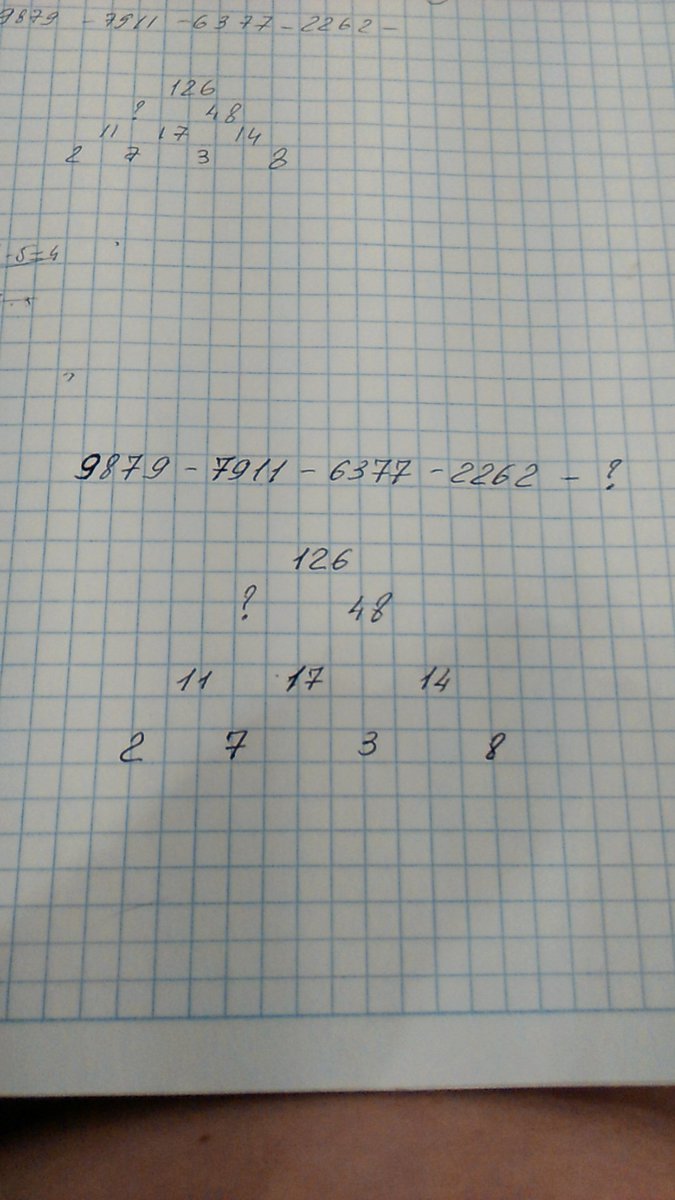 9879 - 7911 - 6377 - 2262 -
126
? 48
11 17 14
2 7 3 8
-5=4
9879 - 7911 - 6377 - 2262 - ?
126
? 48
11 17 14
2 7 3 8